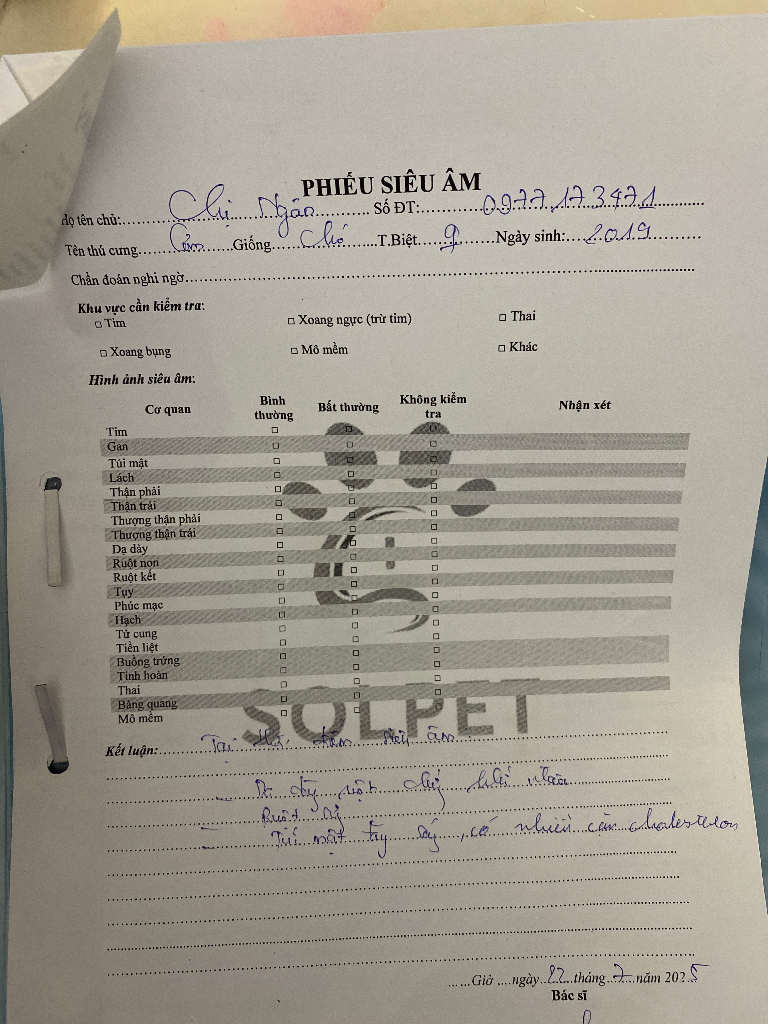 PHIẾU SIÊU ÂM
Họ tên chủ: Chị Ngân Số ĐT: 0977.173471
Tên thú cưng Giống Chó T.Biệt ♀ Ngày sinh: 2019
Chẩn đoán nghi ngờ
Khu vực cần kiểm tra:
□ Tim □ Xoang ngực (trừ tim) □ Thai
□ Xoang bụng □ Mô mềm □ Khác
Hình ảnh siêu âm:
Cơ quan Bình thường Bất thường Không kiểm tra Nhận xét
Tim □ □ □
Gan □ □ □
Túi mật □ □ □
Lách □ □ □
Thận phải □ □ □
Thận trái □ □ □
Thượng thận phải □ □ □
Thượng thận trái □ □ □
Dạ dày □ □ □
Ruột non □ □ □
Ruột kết □ □ □
Tụy □ □ □
Phúc mạc □ □ □
Hạch □ □ □
Tử cung □ □ □
Tiền liệt □ □ □
Buồng trứng □ □ □
Tinh hoàn □ □ □
Thai □ □ □
Bàng quang □ □ □
Mô mềm □ □ □
SOLPET
Kết luận: Tại thời điểm siêu âm
Dạ dày ruột
Ruột
Túi mật , có nhiều cặn cholesteron
Giờ ngày 22 tháng 7 năm 2025
Bác sĩ